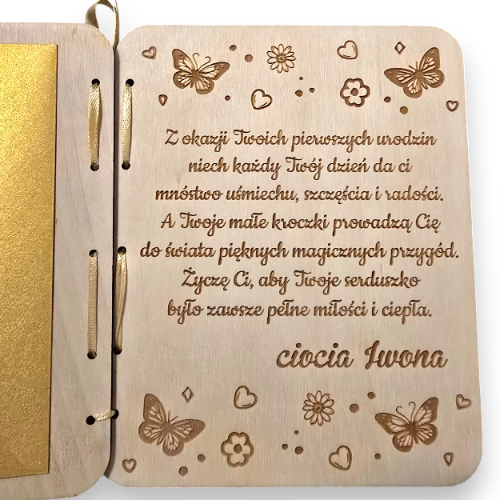 Z okazji Twoich pierwszych urodzin
niech każdy Twój dzień da ci
mnóstwo uśmiechu, szczęścia i radości.
A Twoje małe kroczki prowadzą Cię
do świata pięknych magicznych przygód.
Życzę Ci, aby Twoje serduszko
było zawsze pełne miłości i ciepła.
ciocia Iwona